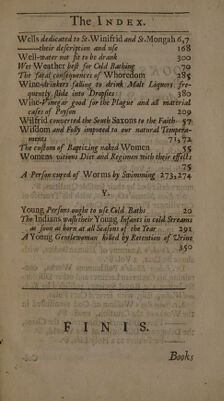 The INDEX.
Wells dedicated to St. Winifrid and St. Mongah 6,7
——their description and use 168
Well-water not fit to be drank 300
Wet Weather best for Cold Bathing 70
The fatal consequences of Whoredom 285
Wine-drinkers falling to drink Malt Liquors fre-
quently slide into Dropsies 380
Wine-Vinegar good for the Plague and all material
cases of Poyson 209
Wilfrid converted the South Saxons to the Faith 57
Wisdom and Folly imputed to our natural Tempera-
ments 71,72
The custom of Baptizing naked Women 55
Womens vitious Diet and Regimen with their effects
75
A Person cured of Worms by Swimming 273,274
Y.
Young Persons ought to use Cold Baths 20
The Indians wash their Young Infants in cold Streams
as soon as born at all Seasons of the Year 291
A Young Gentlewoman killed by Retention of Urine
350
FINIS.
Books